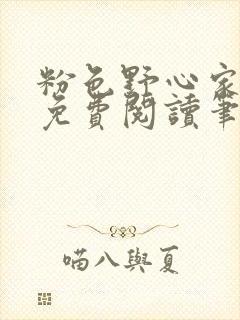 粉色野心家
免費閱讀筆
喵八與夏